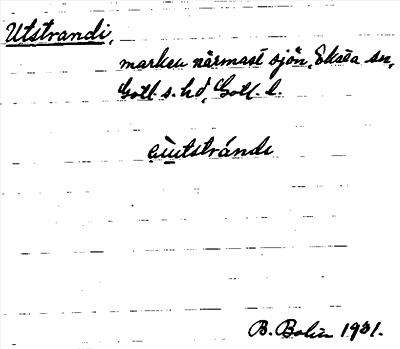 Utstrandi,
marken närmast sjön, Eksta sn,
Gotl. s. hd, Gotl. l.
èu̠tstrándi
B. Bolin 1931.